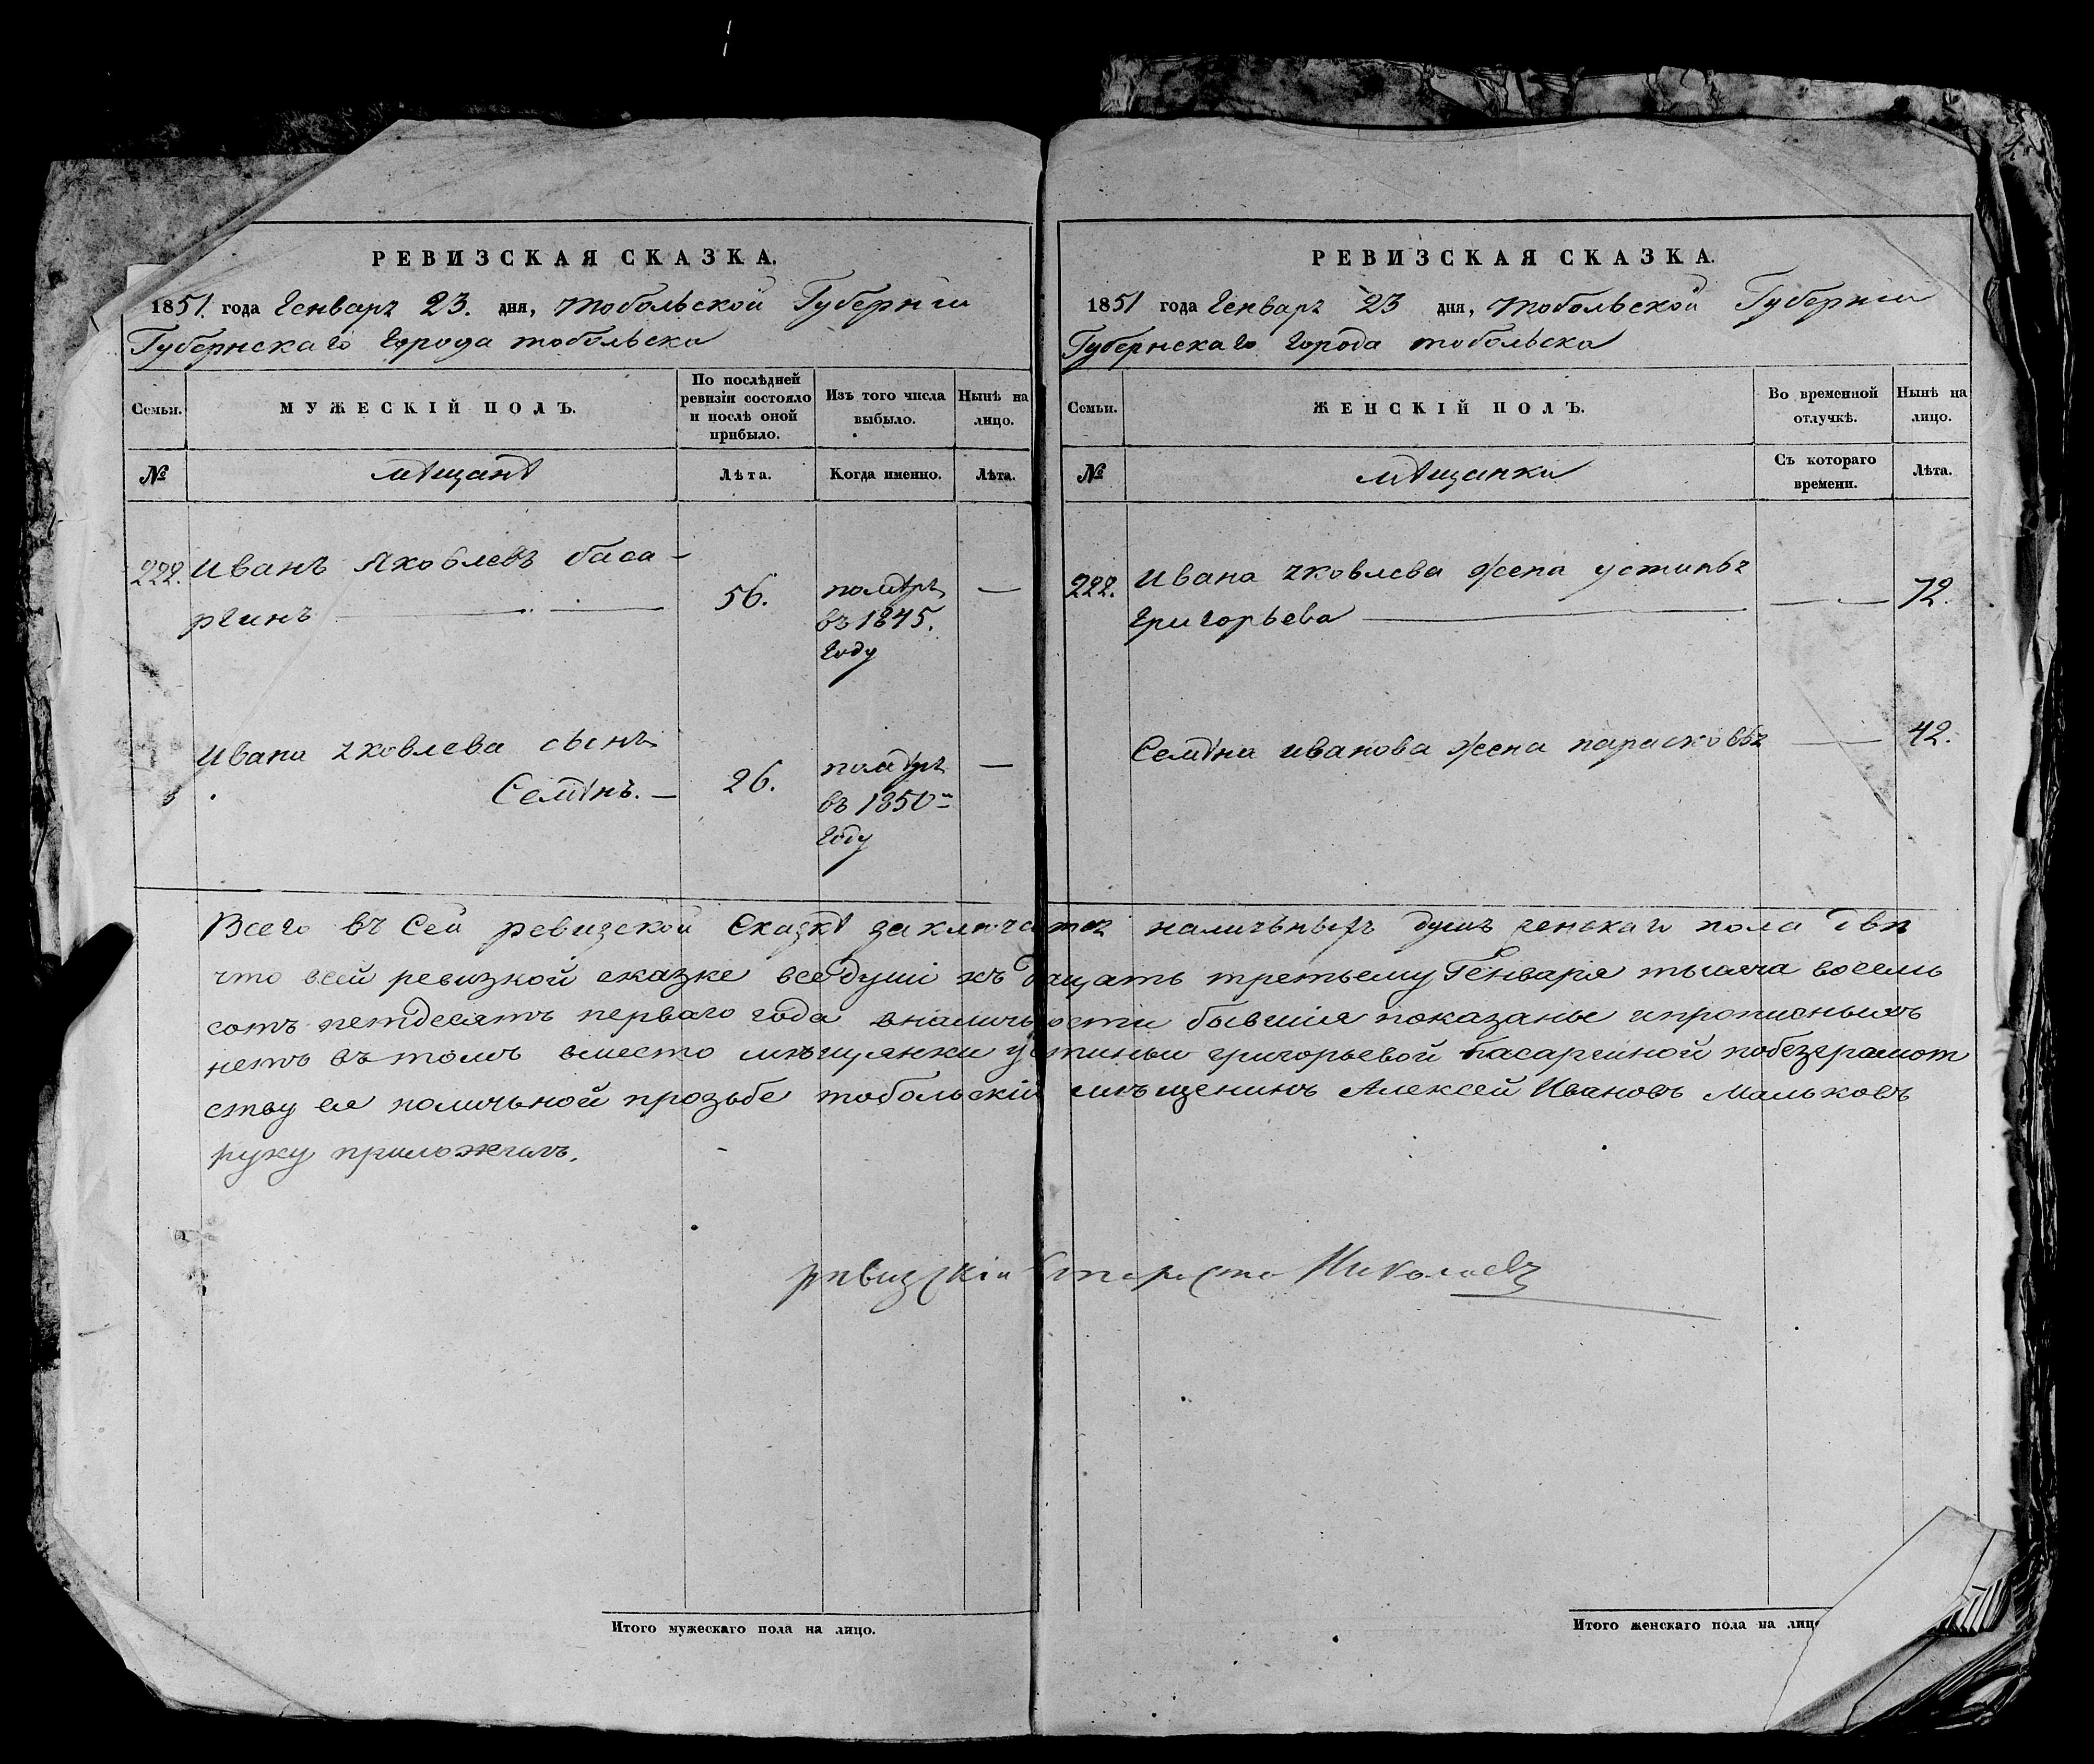 РЕВИЗСКАЯ СКАЗКА.
1851. года Генваря 23. дня, тобольской Губерніи
Губернскаго города тобольска
Семьи.
МУЖЕСКІЙ ПОЛЪ.
По послѣдней
ревизіи состояло
и послѣ оной
прибыло.
Изъ того числа
выбыло.
Нынѣ на
лицо.
№
мѣщанѣ
Лѣта.
Когда именно.
Лѣта.
222. Иванъ Яковлевъ баса-
ргинъ
56.
помѣръ
въ 1845.
году
—
Ивана яковлева сынъ
Семѣнъ. —
26.
помѣръ
въ 1850м
году
—
РЕВИЗСКАЯ СКАЗКА.
1851 года Генваря 23 дня, тобольской Губерніи
Губернскаго города тобольска
Семьи.
ЖЕНСКІЙ ПОЛЪ.
Во временной
отлучкѣ.
Нынѣ на
лицо.
№
мѣщанки
Съ котораго
времени.
Лѣта.
222. Ивана яковлева жена устинья
григорьева
72.
Семѣна иванова жена парасковья
42.
Всего въ Сей ревизской Сказкѣ заключается наличьныхъ душъ женскаго пола двѣ
что всей ревизкой сказке все души къ дацать третьему Генваря тысяча восемь
сотъ петдесятъ перваго года вналичьности бывшия показаны ипрописныхъ
нетъ въ томъ вместо мѣщянки устиньи григорьевой Басаргиной побезграмот
ству ея поличьной прозьбе тобольскій мѣщенинъ Алексей Ивановъ Мальковъ
руку приложилъ.
ревизскіи Староста Николаевъ
Итого мужескаго пола на лицо.
Итого женскаго пола на лиц